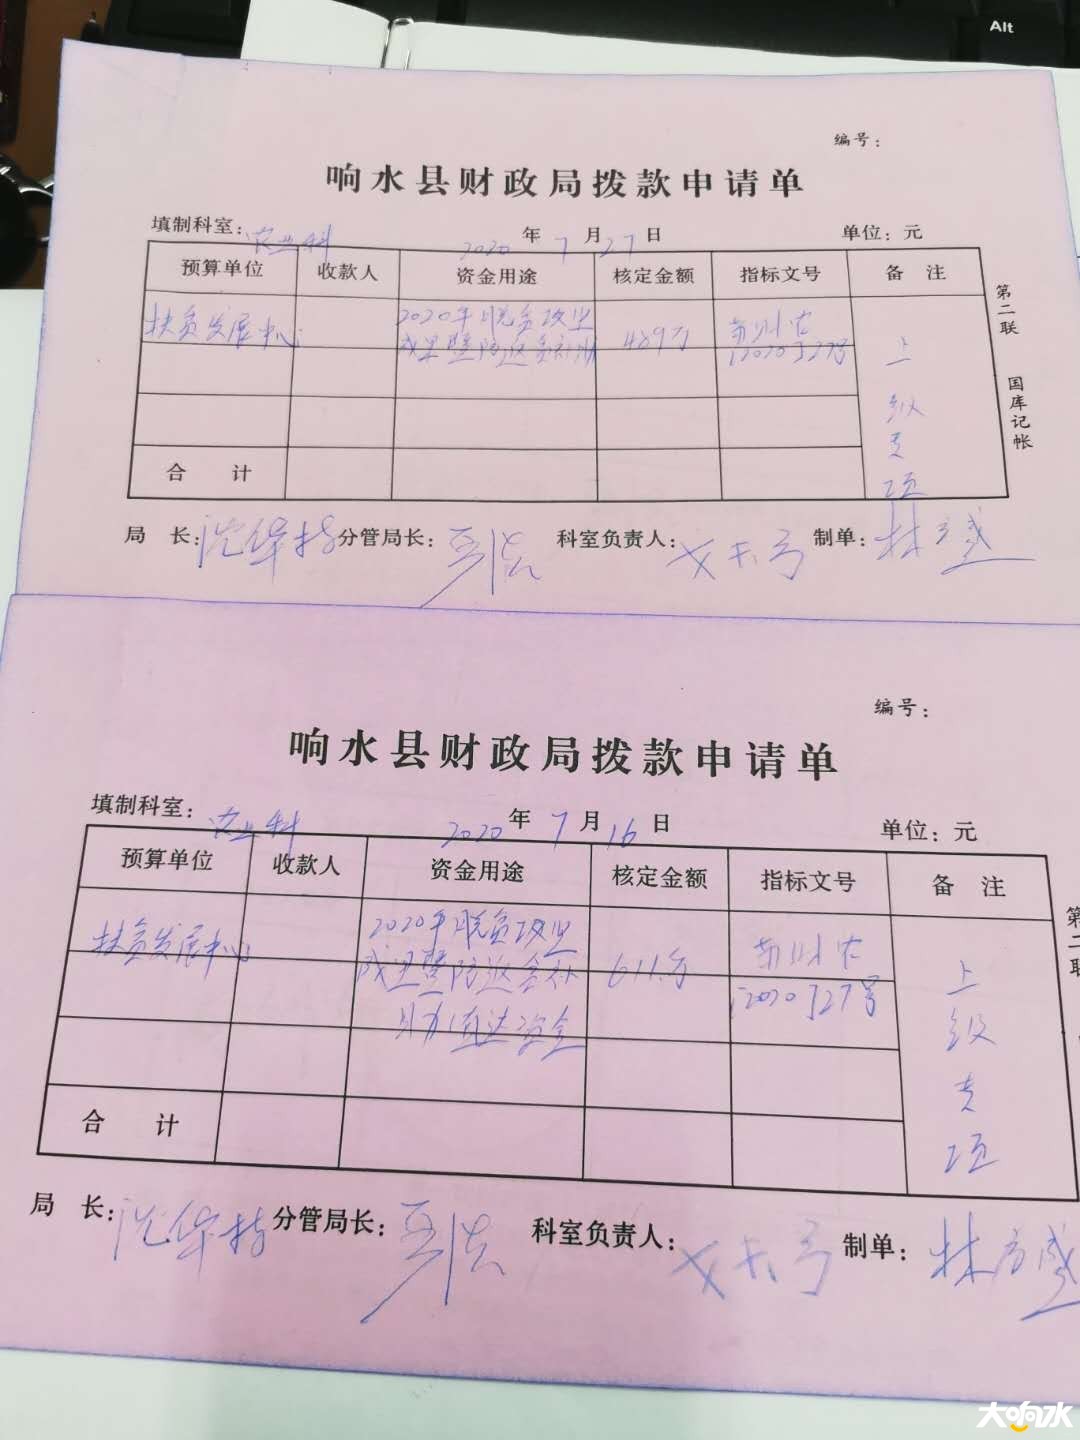 Alt
编号：
响水县财政局拨款申请单
填制科室：农业科 2020年7月27日 单位：元
预算单位 收款人 资金用途 核定金额 指标文号 备 注
扶贫发展中心 2020年脱贫攻坚 苏财农
成果暨防返贫补助 489万 [2020]27号
上级专项
合 计
第二联 国库记帐
局 长： 分管局长： 科室负责人： 制单：林方盛
编号：
响水县财政局拨款申请单
填制科室：农业科 2020年7月16日 单位：元
预算单位 收款人 资金用途 核定金额 指标文号 备 注
扶贫发展中心 2020年脱贫攻坚 苏财农
成果暨防返贫补 611万 [2020]27号
助（直达资金
上级专项
合 计
第二联
局 长： 分管局长： 科室负责人： 制单：林方盛
大响水